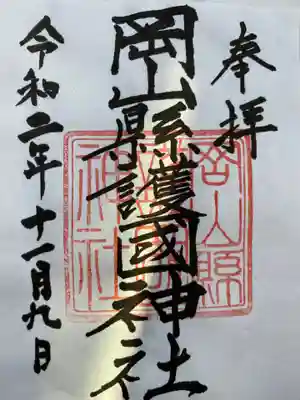 奉拝
岡山縣護國神社
令和二年十一月九日